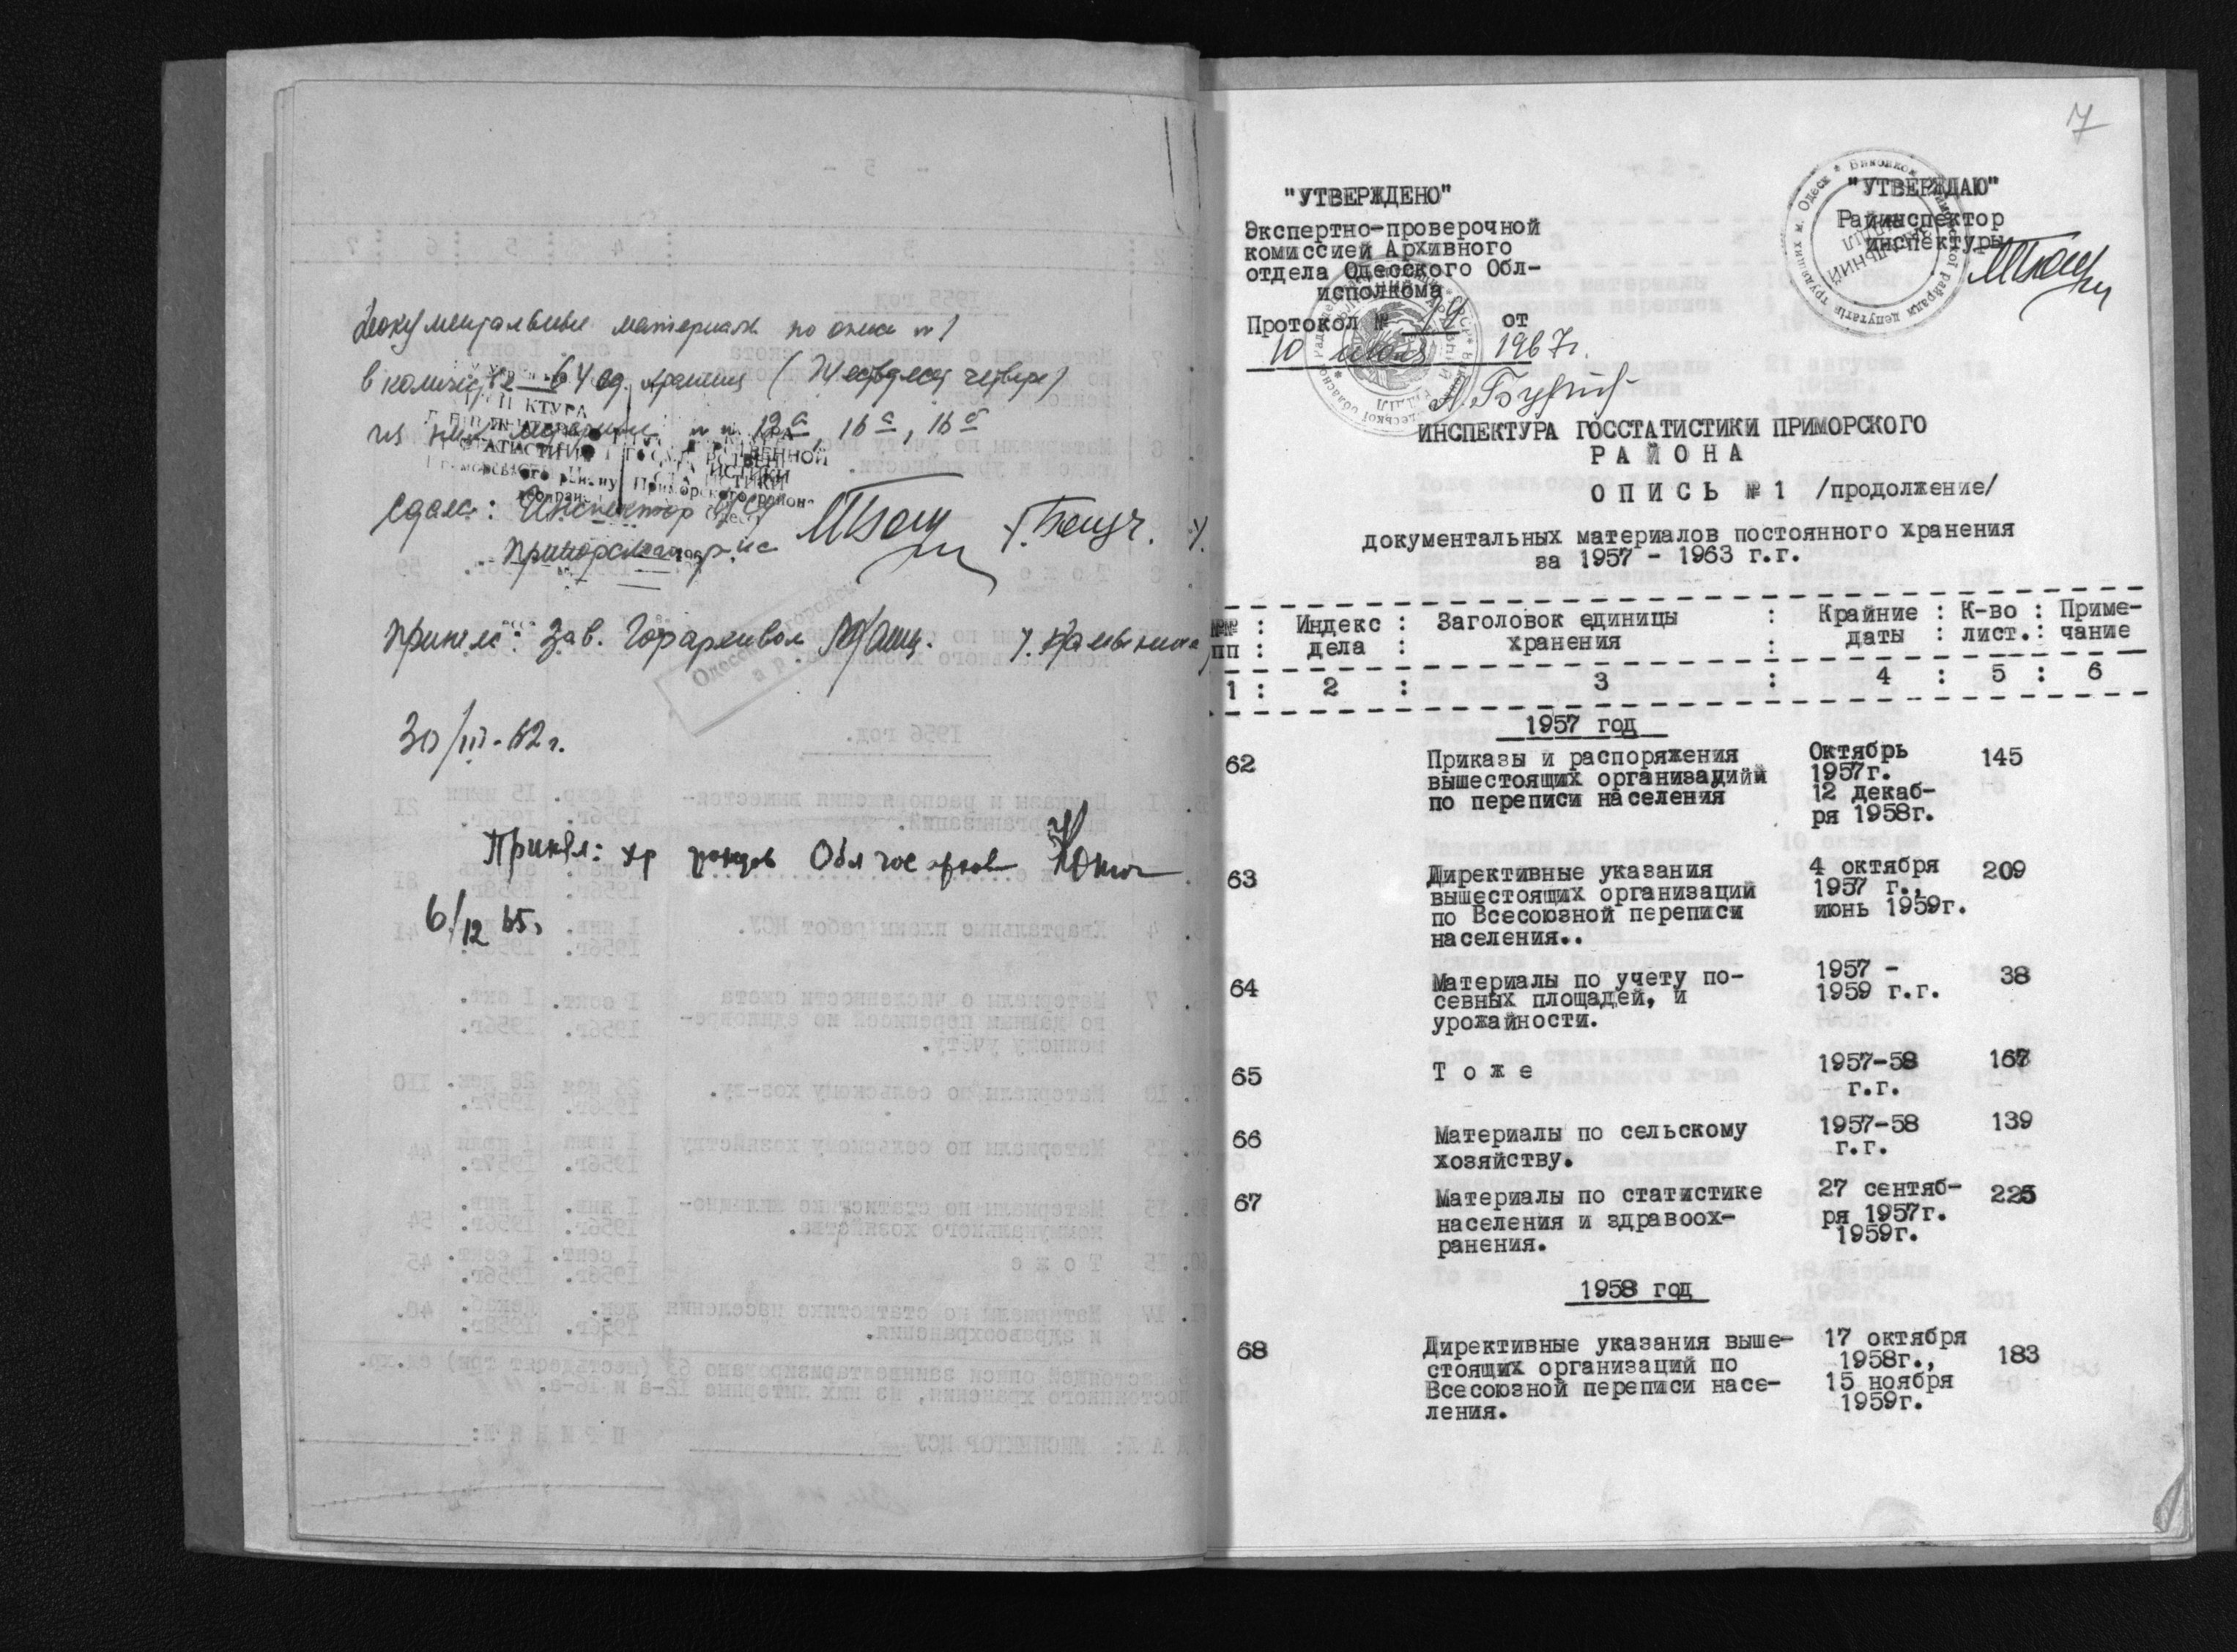 Документальные материалы по описи №1
в количестве 64 ед. хранения (Шестьдесят четыре)
из них литерные №№ 12а, 16а, 16б
Сдал: Инспектор
Приморского р-на
Принял: Зав. Горархивом
30/III-62г.
Принял: хр фондов Облгосархива
6/12 65г.
7
"УТВЕРЖДЕНО"
Экспертно-проверочной
комиссией Архивного
отдела Одесского Обл-
исполкома
Протокол № от
10 июля 1967г.
"УТВЕРЖДАЮ"
Райинспектор
инспектуры
ИНСПЕКТУРА ГОССТАТИСТИКИ ПРИМОРСКОГО
РАЙОНА
ОПИСЬ №1 /продолжение/
документальных материалов постоянного хранения
за 1957 - 1963 г.г.
№№ : Индекс : Заголовок единицы : Крайние : К-во : Приме-
пп : дела : хранения : даты : лист. : чание
1 : 2 : 3 : 4 : 5 : 6
1957 год
62 Приказы и распоряжения Октябрь 145
вышестоящих организаций 1957г.
по переписи населения 12 декаб-
ря 1958г.
63 Директивные указания 4 октября 209
вышестоящих организаций 1957 г.,
по Всесоюзной переписи июнь 1959г.
населения..
64 Материалы по учету по- 1957 - 38
севных площадей, и 1959 г.г.
урожайности.
65 Тоже 1957-58 167
г.г.
66 Материалы по сельскому 1957-58 139
хозяйству. г.г.
67 Материалы по статистике 27 сентяб- 225
населения и здравоох- ря 1957г.
ранения. 1959г.
1958 год
68 Директивные указания выше- 17 октября 183
стоящих организаций по 1958г.,
Всесоюзной переписи насе- 15 ноября
ления. 1959г.